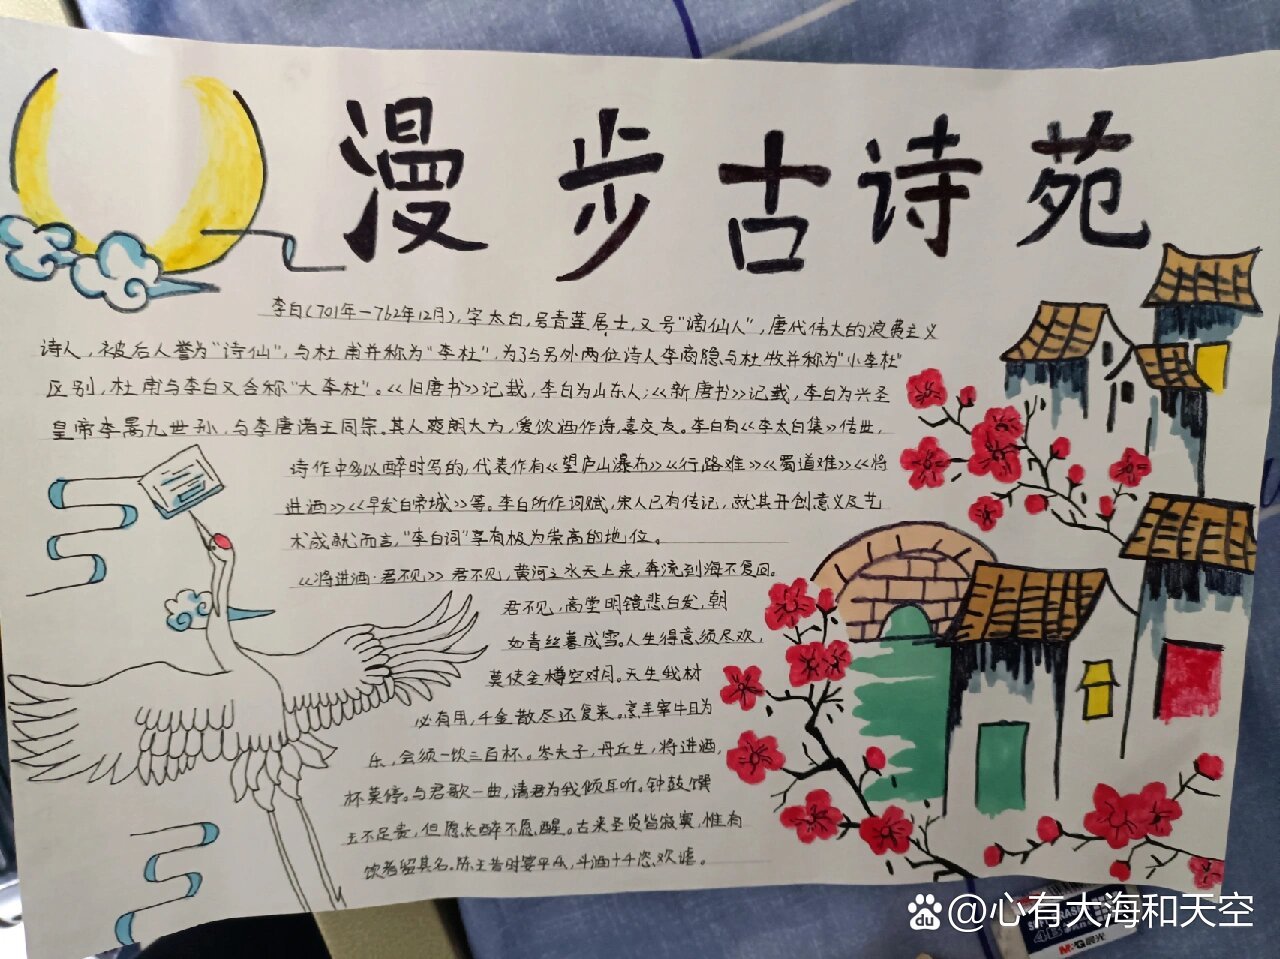 漫步古诗苑
李白(701年—762年12月),字太白,号青莲居士,又号"谪仙人",唐代伟大的浪漫主义
诗人,被后人誉为"诗仙",与杜甫并称为"李杜",为了与另外两位诗人李商隐与杜牧并称为"小李杜"
区别,杜甫与李白又合称"大李杜"。《旧唐书》记载,李白为山东人;《新唐书》记载,李白为兴圣
皇帝李暠九世孙,与李唐诸王同宗。其人爽朗大方,爱饮酒作诗,喜交友。李白有《李太白集》传世,
诗作中多以醉时写的,代表作有《望庐山瀑布》《行路难》《蜀道难》《将
进酒》《早发白帝城》等。李白所作词赋,宋人已有传记,就其开创意义及艺
术成就而言,"李白词"享有极为崇高的地位。
《将进酒·君不见》君不见,黄河之水天上来,奔流到海不复回。
君不见,高堂明镜悲白发,朝
如青丝暮成雪。人生得意须尽欢,
莫使金樽空对月。天生我材
必有用,千金散尽还复来。烹羊宰牛且为
乐,会须一饮三百杯。岑夫子,丹丘生,将进酒,
杯莫停。与君歌一曲,请君为我倾耳听。钟鼓馔
玉不足贵,但愿长醉不愿醒。古来圣贤皆寂寞,惟有
饮者留其名。陈王昔时宴平乐,斗酒十千恣欢谑。
M&G晨光
du @心有大海和天空